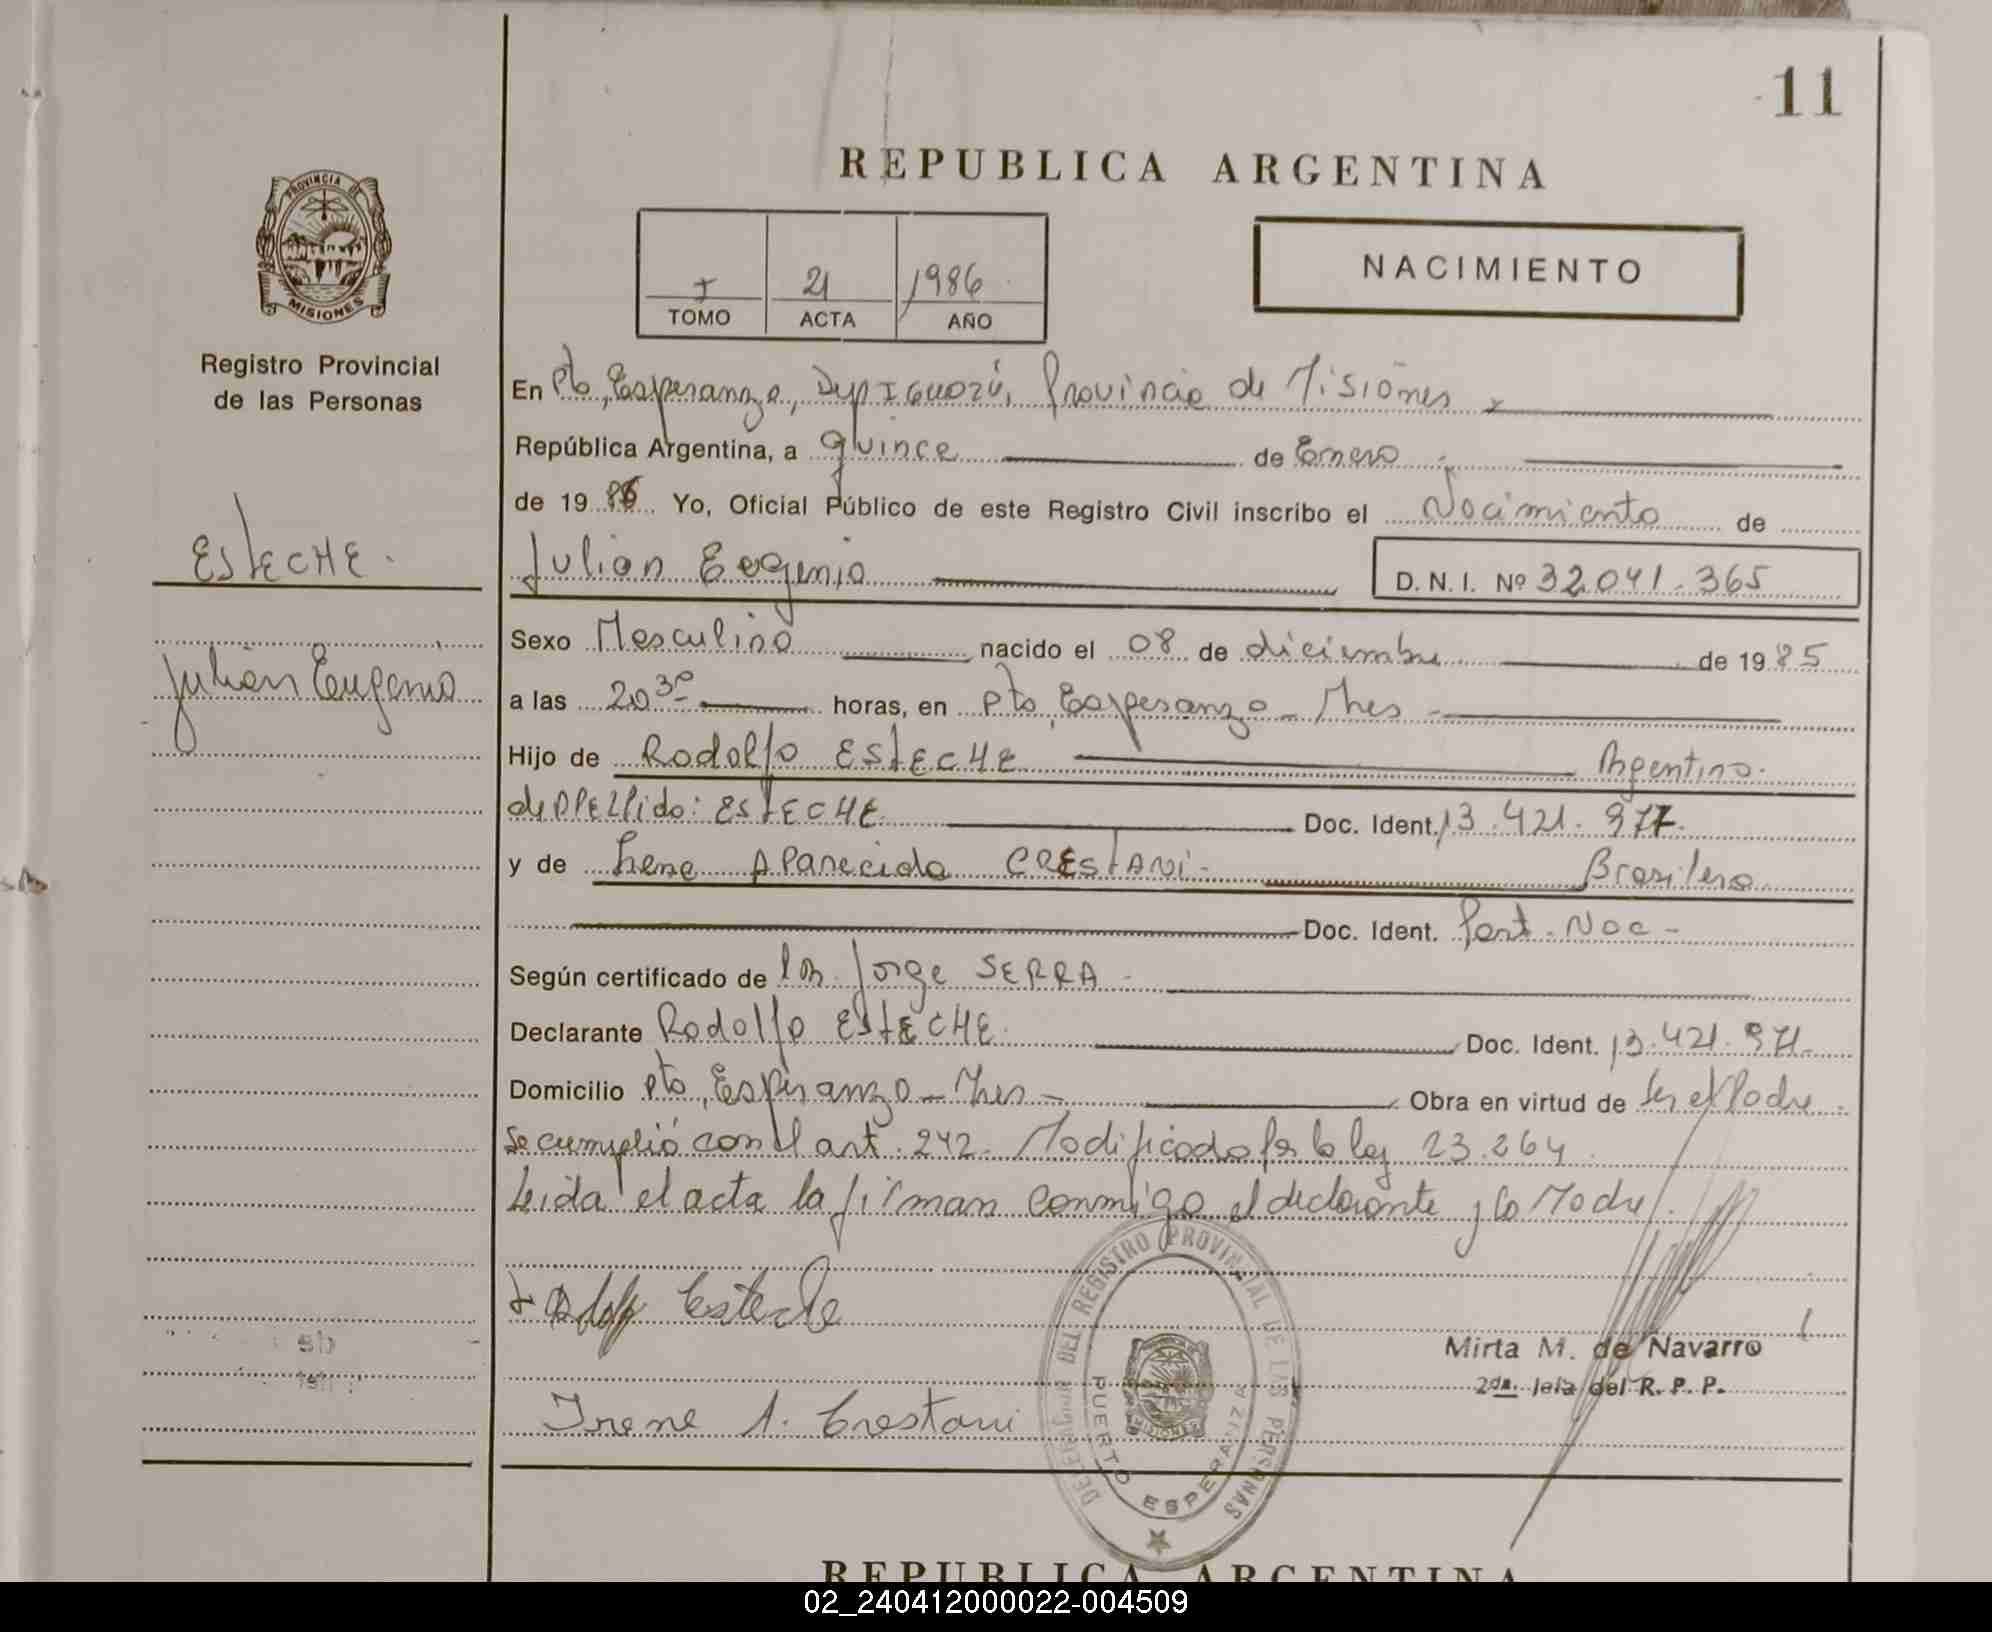 11
REPUBLICA ARGENTINA
PROVINCIA DE
MISIONES
Registro Provincial
de las Personas
I 21 1986
TOMO ACTA AÑO
NACIMIENTO
En Pto, Esperanza, Dep Iguazú, Provincia de Misiones
República Argentina, a quince de Enero
de 1986 Yo, Oficial Público de este Registro Civil inscribo el Nacimiento de
ESTECHE.
Julian Eugenio D.N.I. Nº 32.041.365
Sexo Masculino nacido el 08 de diciembre de 1985
Julián Eugenio
a las 20 30 horas, en Pto, Esperanza - Mnes -
Hijo de Rodolfo ESTECHE Argentino.
de APELLido: ESTECHE Doc. Ident. 13.421.977.
y de Irene Aparecida CRESTANi - Brasilera
Doc. Ident. Part. Nac -
Según certificado de Jorge SERRA -
Declarante Rodolfo ESTECHE. Doc. Ident. 13.421.971.
Domicilio Pto, Esperanza - Mnes - Obra en virtud de Ser el Padre.
Se cumplió con el art. 242. Modificado por la ley 23.264
Leida el acta la firman conmigo el declarante y la Madre.
Esteche
Irene A. Crestani
DELEGACION DEL REGISTRO PROVINCIAL DE LAS PERSONAS
PUERTO ESPERANZA
Mirta M. de Navarro
2da. Jefa del R. P. P.
REPUBLICA ARGENTINA
02_240412000022-004509